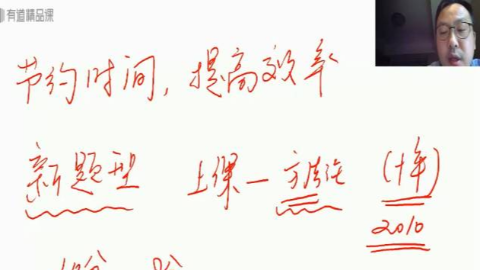 有道精品课
节约时间，提高效率
新题型 上课一方法论 (十年)
2010